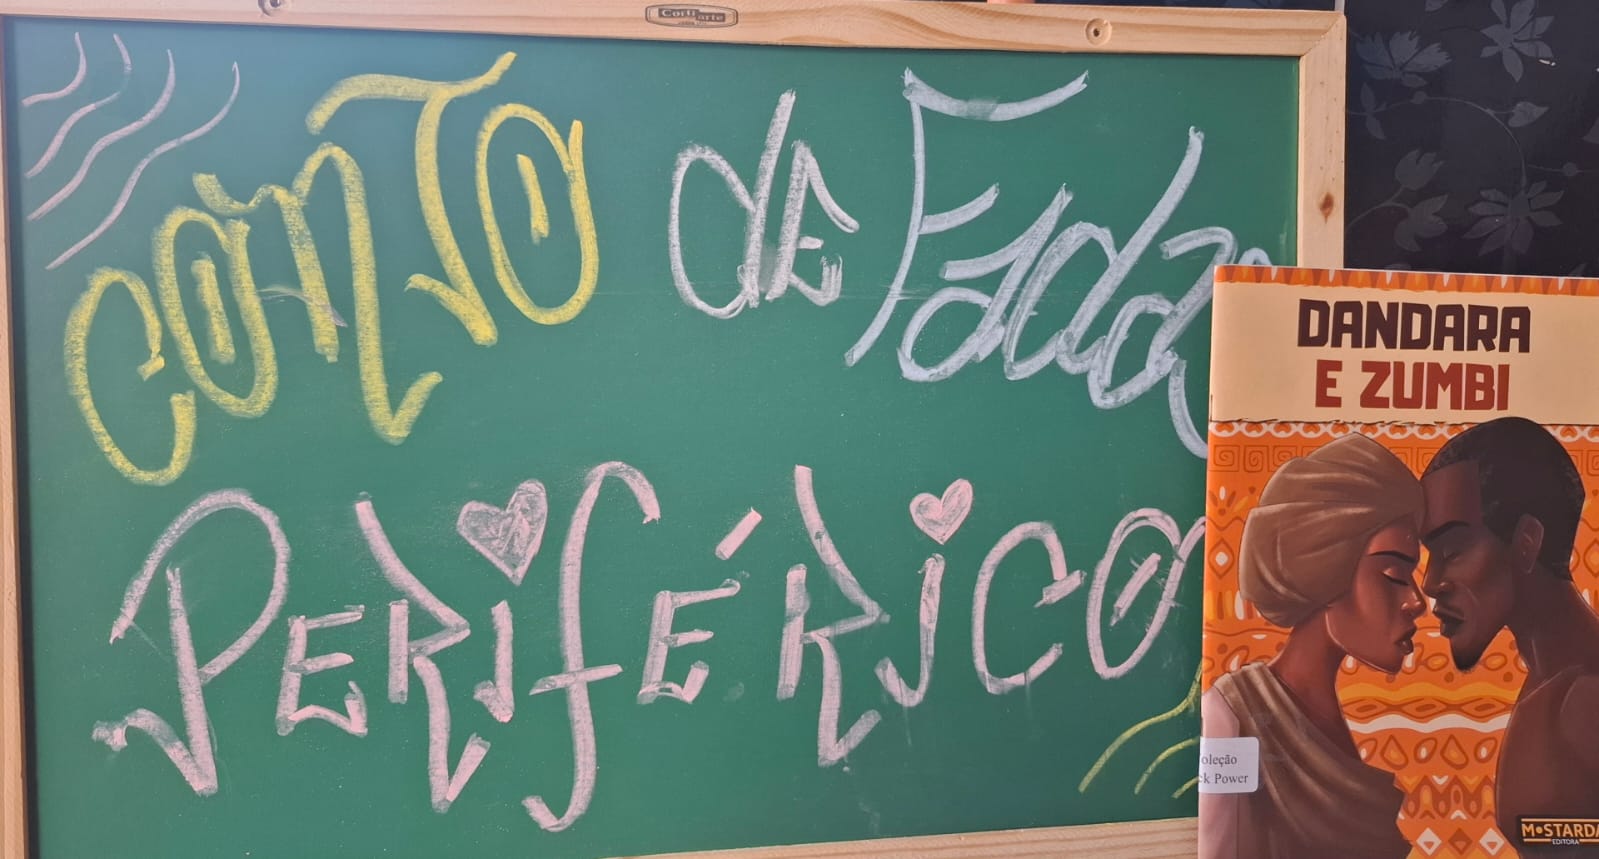 Corti arte
CONTO de Fada
PERIFÉRICO
DANDARA
E ZUMBI
oleção
ck Power
MOSTARDA
EDITORA